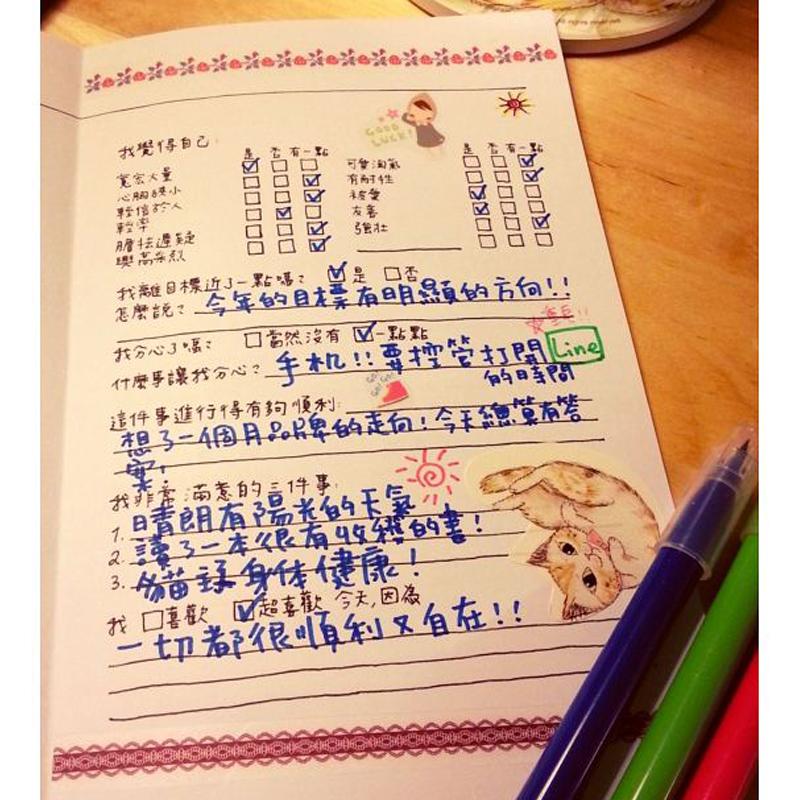 GOOD
LUCK!
我覺得自己:
是 否 有一點
是 否 有一點
寬宏大量
可愛淘氣
心胸狹小
有耐性
輕信於人
被愛
輕率
友善
膽怯遲疑
強壯
興高采烈
我離目標近了一點嗎? 是 否
怎麼說? 今年的目標有明顯的方向!!
我分心了嗎? 當然沒有 一點點
什麼事讓我分心? 手机!! 要控管打開 Line
的時間
這件事進行得有夠順利:
想了一個月品牌的走向!今天總算有答
案!
我非常滿意的三件事:
1. 晴朗有陽光的天氣
2. 讀了一本很有收穫的書!
3. 身体健康!
我 喜歡 超喜歡 今天,因為
一切都很順利又自在!!